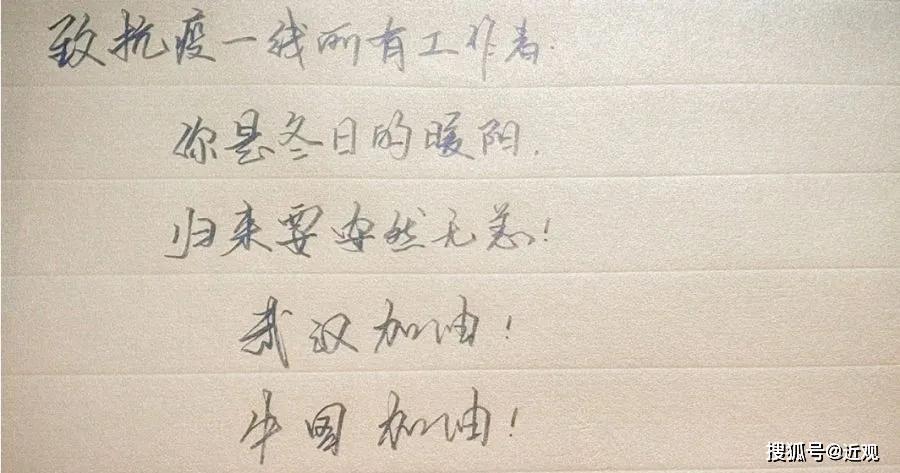 致抗疫一线所有工作者:
你是冬日的暖阳.
归来要安然无恙!
武汉加油!
中国加油!
搜狐号@近观